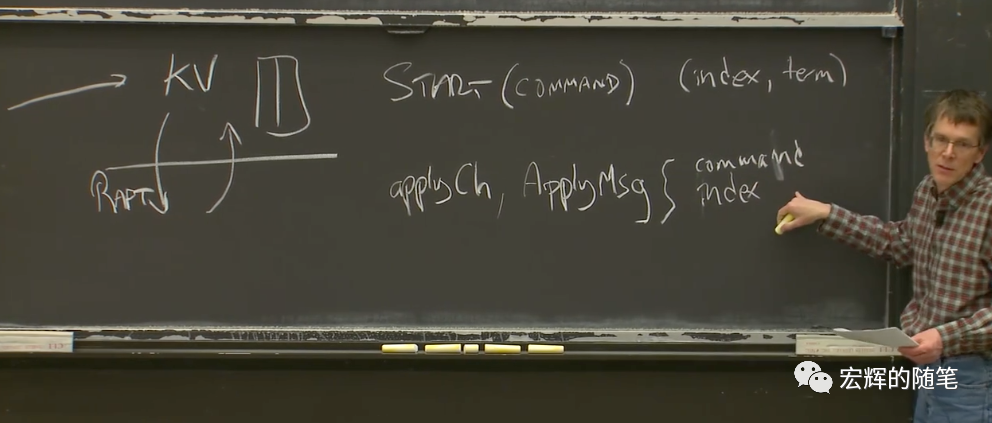 KV
START (COMMAND) (index, term)
RAFT
applyCh, ApplyMsg { command
index
宏辉的随笔